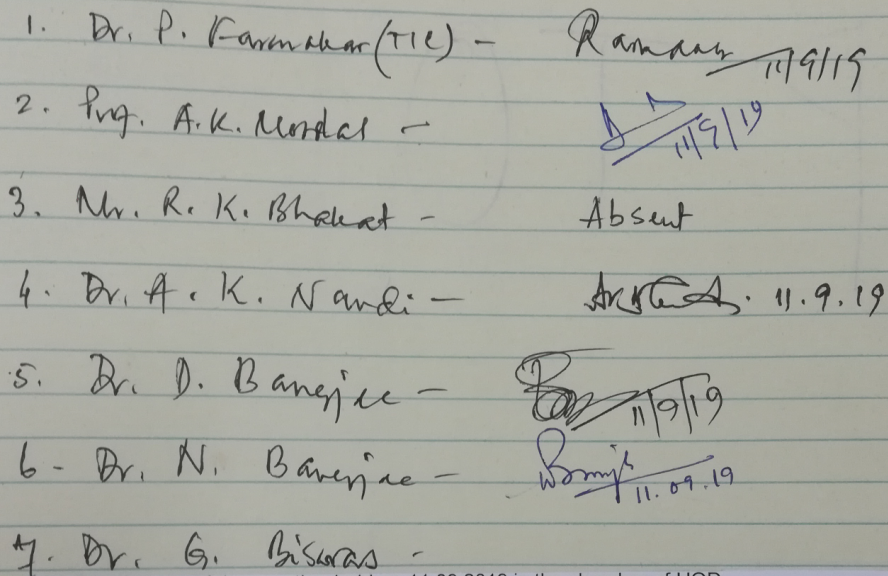 1. Dr. P. Karmakar (TIC) - 11/9/19
2. Prof. A.K. Mondal - 11/9/19
3. Mr. R. K. Bhakat - Absent
4. Dr. A. K. Nandi - 11.9.19
5. Dr. D. Banerjee - 11/9/19
6 - Dr. N. Banerjee - 11.09.19
7. Dr. G. Biswas -